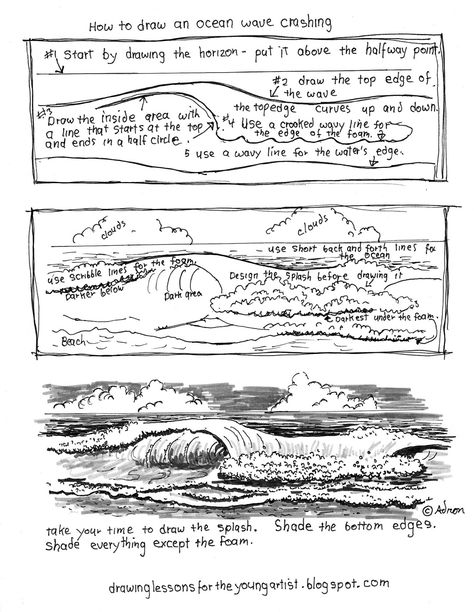 How to draw an ocean wave crashing
#1 Start by drawing the horizon - put it above the halfway point.
#2 draw the top edge of
the wave
the top edge curves up and down.
#3
Draw the inside area with
a line that starts at the top
and ends in a half circle.
#4 Use a crooked wavy line for
the edge of the foam.
5 use a wavy line for the water's edge.
clouds
clouds
use short back and forth lines for
the ocean
use scribble lines for the foam.
Darker below
Dark area
Design the splash before drawing it
Darkest under the foam.
Beach
© Adron
take your time to draw the splash. Shade the bottom edges.
Shade everything except the foam.
drawinglessonsfortheyoungartist.blogspot.com